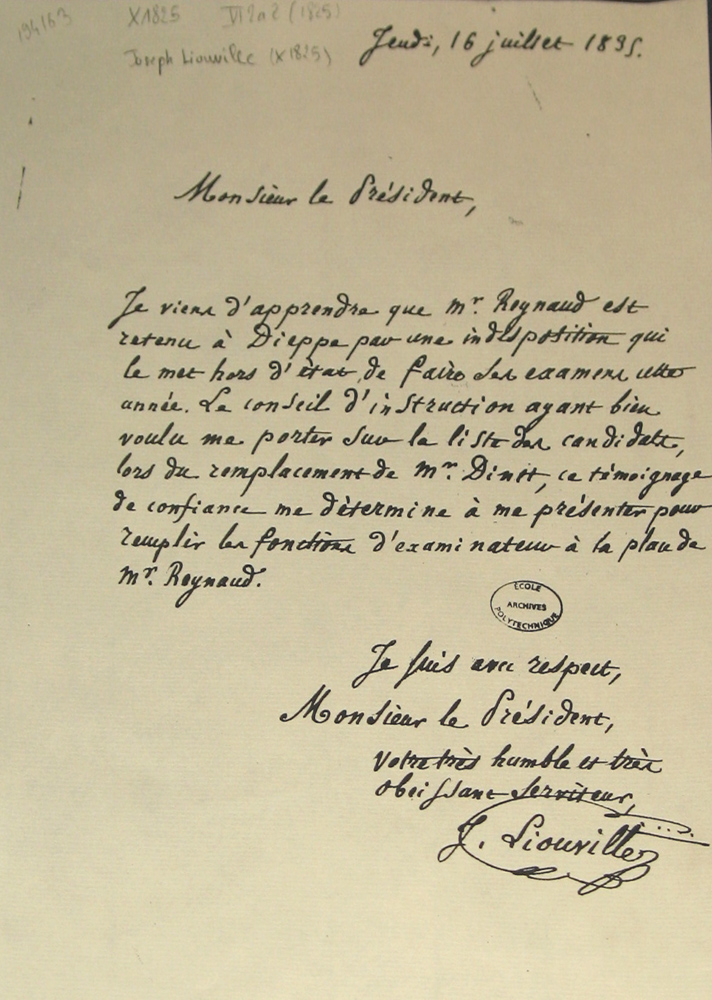 194163
X1825 VI2a2 (1825)
Joseph Liouville (X1825)
Jeudi, 16 juillet 1835.
Monsieur le Président,
Je viens d'apprendre que Mr. Reynaud est
retenu à Dieppe par une indisposition qui
le met hors d'état de faire ses examens cette
année. Le conseil d'instruction ayant bien
voulu me porter sur la liste des candidats,
lors du remplacement de Mr. Dinet, ce témoignage
de confiance me détermine à me présenter pour
remplir les fonctions d'examinateur à la place de
Mr. Reynaud.
ÉCOLE
ARCHIVES
POLYTECHNIQUE
Je suis avec respect,
Monsieur le Président,
votre très humble et très
obéissant serviteur,
J. Liouville